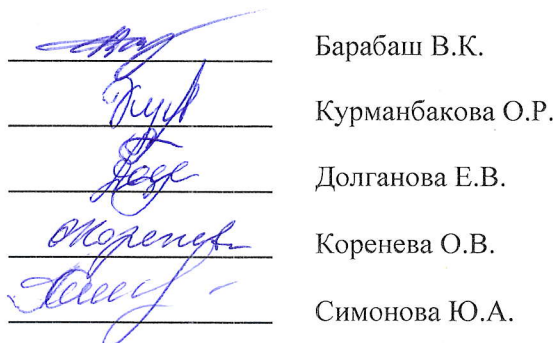 Барабаш В.К.
Курманбакова О.Р.
Долганова Е.В.
Коренева О.В.
Симонова Ю.А.